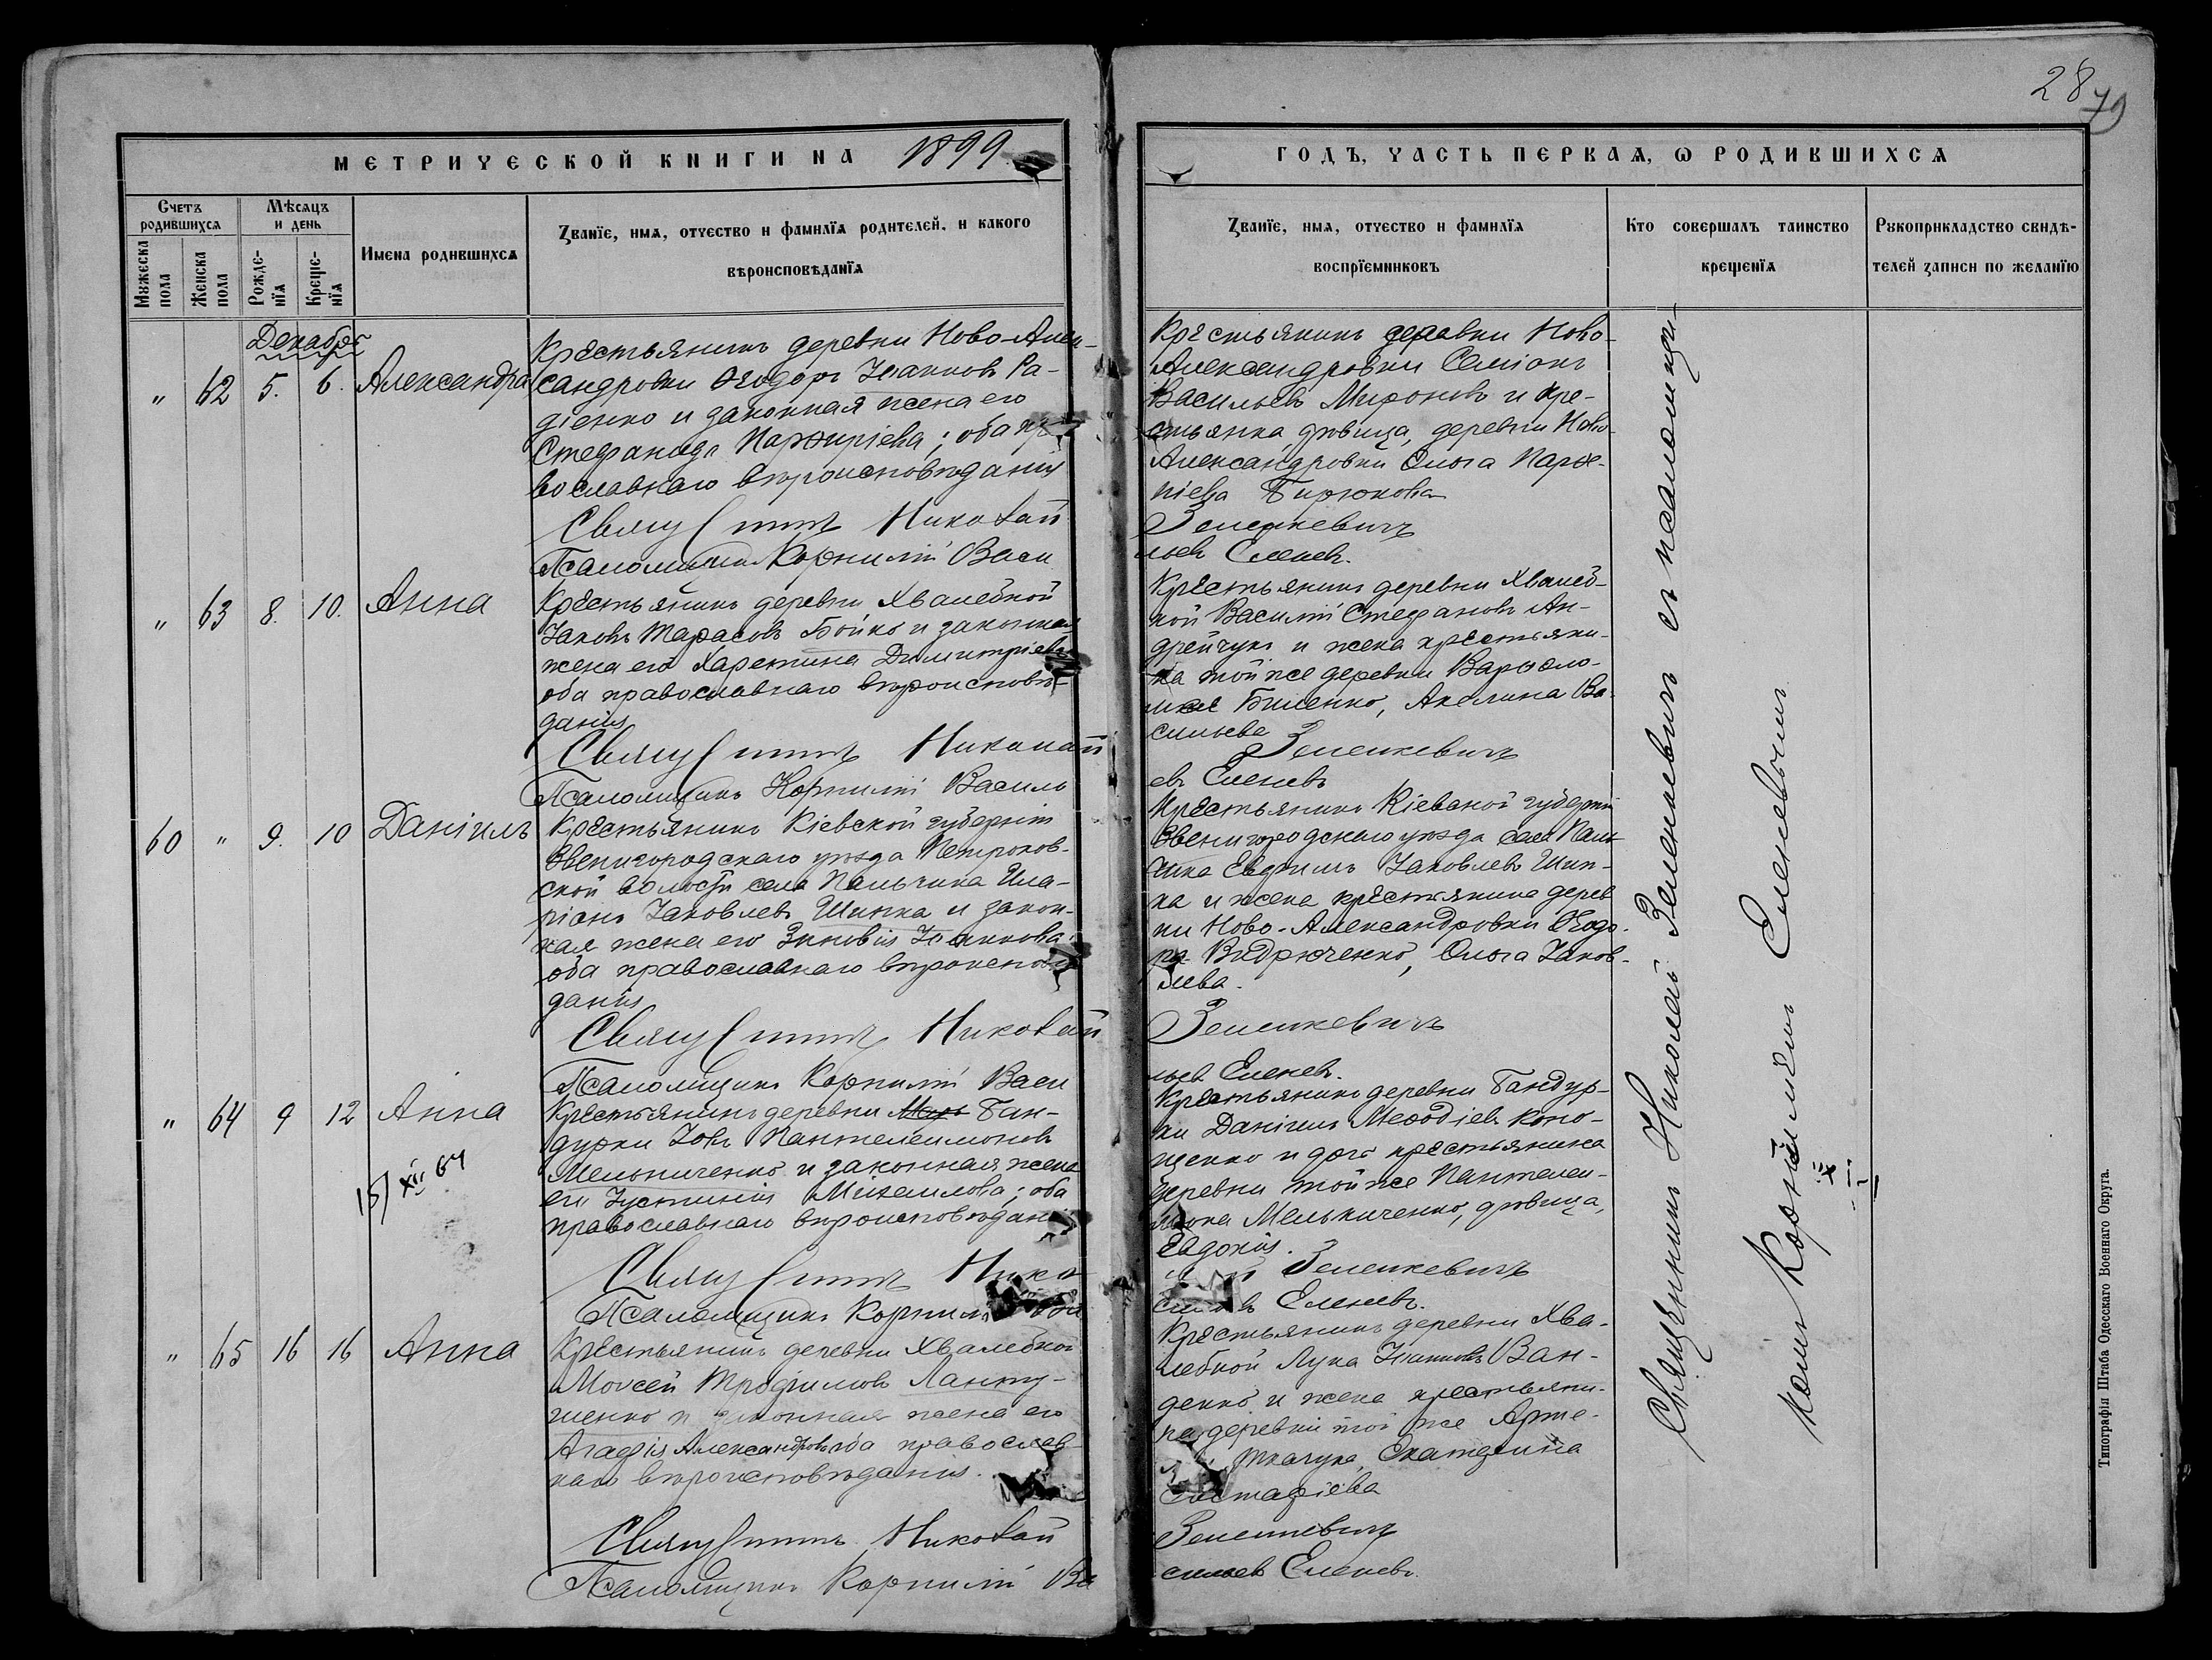 28
79
МЕТРИЧЕСКОЙ КНИГИ НА 1899
ГОДЪ, ЧАСТЬ ПЕРВАЯ, Ѡ РОДИВШИХСЯ
Счетъ родившихся
Мужеска пола
Женска пола
Мѣсяцъ и день
Рожденїя
Крещенїя
Имена родившихся
Званїе, имя, отчество и фамилїя родителей, и какого
вѣроисповѣданїя
Званїе, имя, отчество и фамилїя
воспрїемниковъ
Кто совершалъ таинство
крещенїя
Рукоприкладство свидѣ-
телей записи по желанїю
Декабрь
" 62 5. 6. Александра
Крестьянинъ деревни Ново-Алек-
сандровки Ѳеодоръ Іоанновъ Ра-
діенко и законная жена его
Стефанида Парфиріева; оба пра
вославнаго вѣроисповѣданія
Священникъ Николай
Псаломщикъ Корнилій Васи
Крестьянинъ деревни Ново-
Александровки Симіонъ
Васильевъ Мироновъ и кре-
стьянка дѣвица, деревни Ново-
Александровки Ольга Парѳе-
ніева Бирюкова
Зеленкевичъ
льевъ Еленевъ.
" 63 8. 10. Анна
Крестьянинъ деревни Хвалебной
Іаковъ Тарасовъ Бойко и законная
жена его Харетина Димитріева
оба православнаго вѣроисповѣ-
данія
Священникъ Николай
Псаломщикъ Корнилій Василь
Крестьянинъ деревни Хвалеб-
ной Василій Стефановъ Ан-
дрейчукъ и жена крестьяни-
на той же деревни Варѳоло-
мея Биленко, Акелина Ва-
сильева
Зеленкевичъ
евъ Еленевъ
60 " 9. 10 Даніилъ
Крестьянинъ Кіевской губерніи
Звенигородскаго уѣзда Петроков-
ской волости села Пальчика Ила-
ріонъ Іаковлевъ Шипка и закон-
ная жена его Зиновія Іоаннова;
оба православнаго вѣроисповѣ
данія
Священникъ Николай
Псаломщикъ Корнилій Васи
Крестьянинъ Кіевской губерніи
Звенигородскаго уѣзда села Паль
чика Евфимъ Іаковлевъ Шип-
ка и жена крестьянина дерев
ни Ново-Александровки Ѳеодо-
ра Видрюченко, Ольга Іаков-
лева.
Зеленкевичъ
льевъ Еленевъ.
" 64 9 12 Анна
15/XII 64
Крестьянинъ деревни Бан-
дурки Іовъ Пантелеимоновъ
Мельниченко и законная жена
его Іустинія Михаилова; оба
православнаго вѣроисповѣданія
Священникъ Нико
Псаломщикъ Корнилій Ва
Крестьянинъ деревни Бандур-
ки Даніилъ Меѳодіевъ Коно-
щенко и дочь крестьянина
деревни той же Пантелеи-
мона Мельниченко, дѣвица,
Евдокія.
лай Зеленкевичъ
сильевъ Еленевъ.
" 65 16 16 Анна
Крестьянинъ деревни Хвалебной
Моѵсей Трофимовъ Ланту-
шенко и законная жена его
Агафія Александрова оба православ-
наго вѣроисповѣданія.
Священникъ Николай
Псаломщикъ Корнилій Ва
Крестьянинъ деревни Хва-
лебной Лука Іоанновъ Ван-
денко и жена крестьяни-
на деревни той же Арте-
Ткачука, Екатерина
Евстафіева
Зеленкевичъ
сильевъ Еленевъ.
Священникъ Николай Зеленкевичъ съ псаломщи-
комъ Корниліемъ Еленевымъ
Типографія Штаба Одесскаго Военнаго Округа.